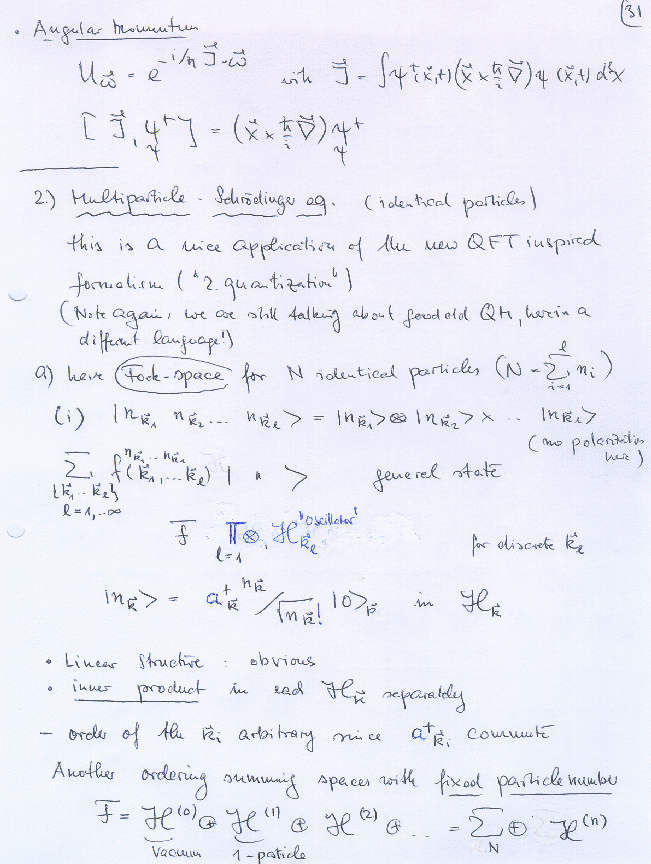 31
• Angular Momentum
U_ω⃗ = e^{-i/ħ J⃗·ω⃗} with J⃗ = ∫ψ⁺(x⃗,t)(x⃗ × ħ/i ∇⃗)ψ (x⃗,t) d³x
[ J⃗, ψ⁺ ] = (x⃗ × ħ/i ∇⃗) ψ⁺
ψ ψ
2.) Multiparticle - Schrödinger eq. (identical particles)
this is a nice application of the new QFT inspired
formalism ("2. quantization")
(Note again, we are still talking about good old QM, here in a
different language!)
a) have Fock-space for N identical particles (N = Σ_{i=1}^{l} n_i)
(i) |n_{k⃗₁} n_{k⃗₂} ... n_{k⃗_l}> = |n_{k⃗₁}> ⊗ |n_{k⃗₂}> × .. |n_{k⃗_l}>
(no polarization here)
Σ_{{k⃗₁..k⃗_l} l=1,..∞} f^{n_{k⃗₁}...n_{k⃗_l}}(k⃗₁,...k⃗_l) | " > general state
F = Π⊗_{l=1} ℋ_{k⃗_l}^{'oscillator'} for discrete k⃗_l
|n_{k⃗}> = a⁺_{k⃗}^{n_{k⃗}} / √n_{k⃗}! |0>_{k⃗} in ℋ_{k⃗}
• Linear structure : obvious
• inner product in each ℋ_{k⃗} separately
– order of the k⃗_i arbitrary since a⁺_{k⃗_i} commute
Another ordering summing spaces with fixed particle number
F = ℋ^{(0)} ⊕ ℋ^{(1)} ⊕ ℋ^{(2)} ⊕ ... = Σ_N ⊕ ℋ^{(n)}
Vacuum 1-particle